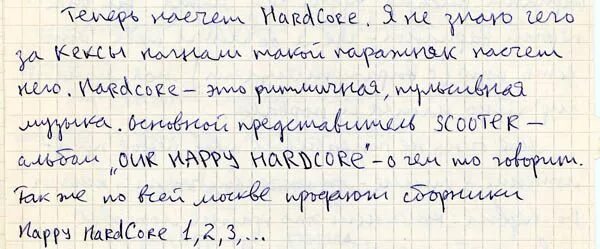 Теперь насчет HardCore. Я не знаю чего
за кексы погнали такой порожняк насчет
него. Hardcore – это ритмичная, пульсивная
музыка. Основной представитель SCOOTER –
альбом „OUR HAPPY HARDCORE" – о чем то говорит.
Так же по всей москве продают сборники
Happy HardCore 1, 2, 3, ...